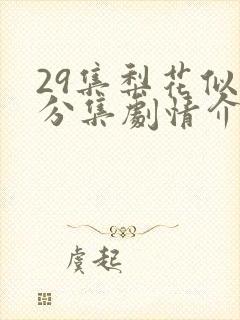 29集梨花似
分集劇情介
虞起